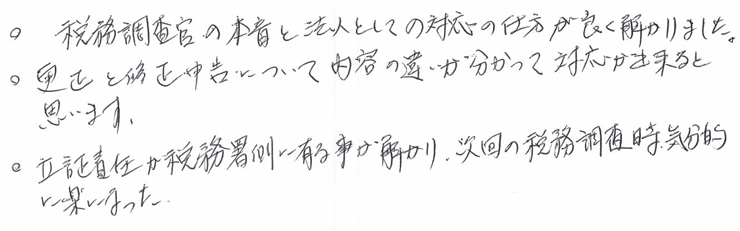 。税務調査官の本音と法人としての対応の仕方が良く解かりました。
。更正と修正申告について内容の違いが分かって対応が出来ると
思います。
。立証責任が税務署側に有る事が解かり、次回の税務調査時、気分的
に楽になった。